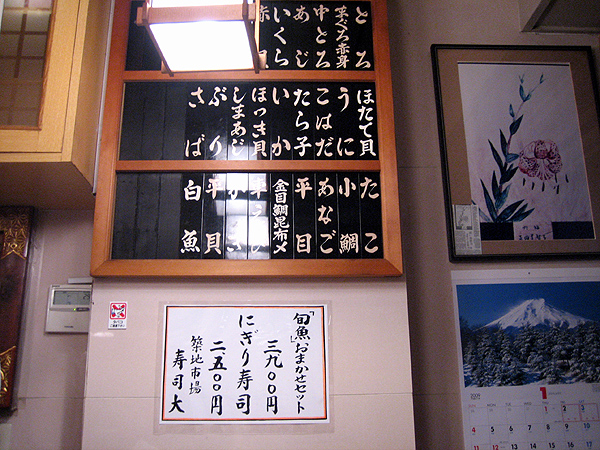 とろ
まぐろ赤身
中とろ
あじ
いくら
ほたて貝
うに
こはだ
たら子
いか
ほっき貝
しまあじ
ぶり
さば
たこ
小鯛
あなご
平目
金目鯛昆布〆
平貝
白魚
「旬魚」おまかせセット
三九〇〇円
にぎり寿司
二五〇〇円
築地市場
寿司大
2009
1
1 2 3
4 5 6 7 8 9 10
11 12 13 14 15 16 17